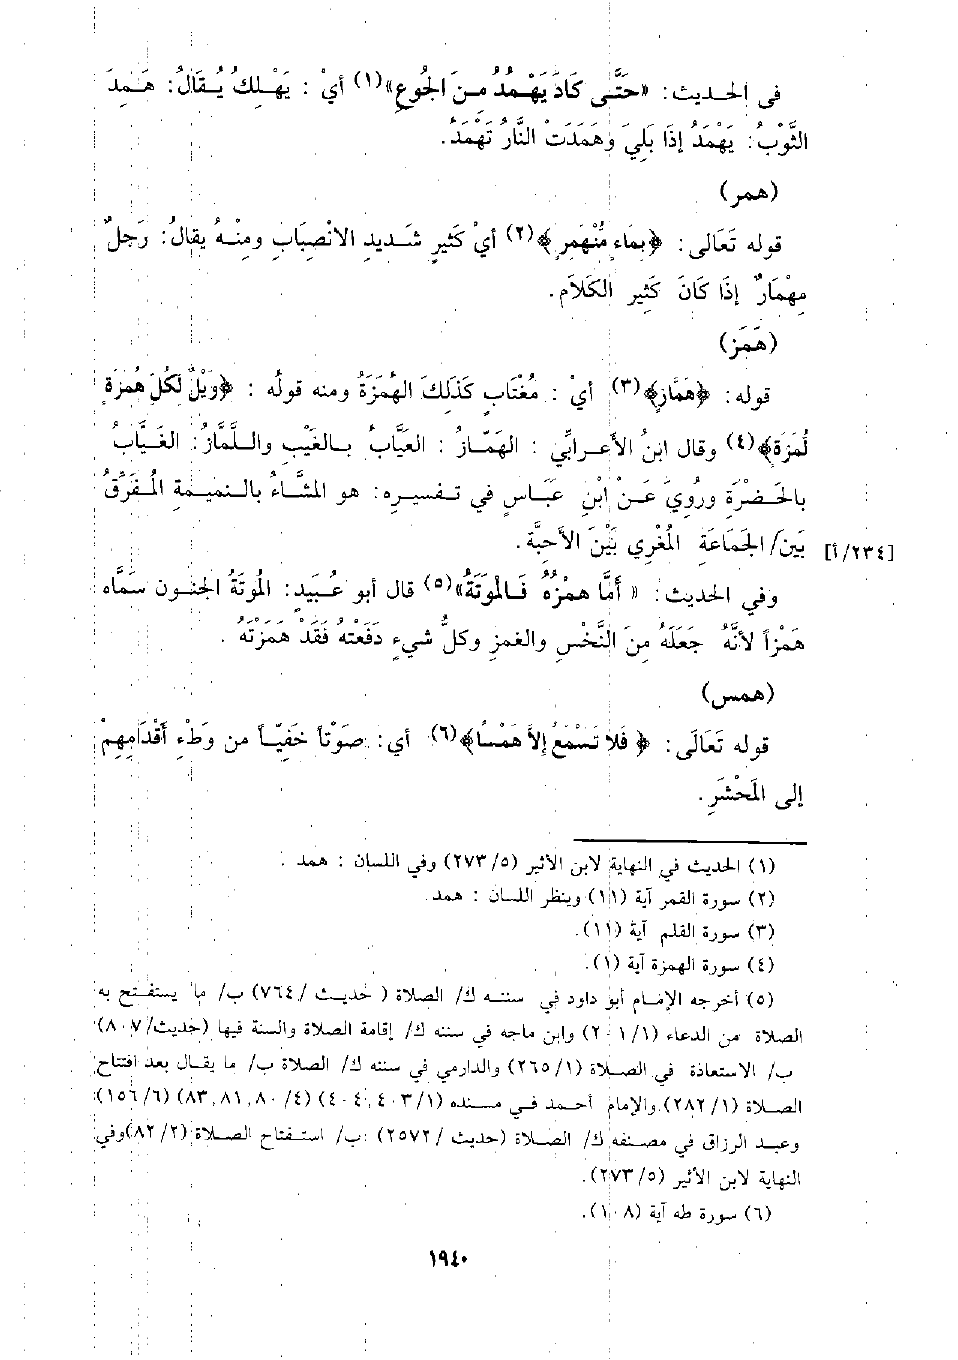 في الحديث: «حَتَّى كَادَ يَهْمُدُ مِنَ الجُوعِ»(١) أيْ: يَهْلِكُ يُقَالُ: هَمِدَ
الثَّوْبُ: يَهْمَدُ إذَا بَلِيَ وَهَمَدَت النَّارُ تَهْمَدُ.
(همر)
قوله تَعَالى: ﴿بِمَاءٍ مُّنْهَمِرٍ﴾(٢) أيْ كَثِيرٍ شَديدِ الانْصِبَابِ ومنْهُ يقالُ: رَجلٌ
مِهْمَارٌ إذَا كَانَ كَثِير الكَلاَمِ.
(هَمَز)
قوله: ﴿هَمَّازٍ﴾(٣) أيْ: مُغْتَابٍ كَذَلِكَ الهُمَزَةُ ومنه قولُه: ﴿وَيْلٌ لِكُلِّ هُمَزَةٍ
لُمَزَة﴾(٤) وقال ابنُ الأعرابيِّ: الهَمَّازُ: العَيَّابُ بالغَيْبِ واللمَّازُ: الغَيَّابُ
بالحَضْرَةِ ورُويَ عَنْ ابْنِ عَبَّاسٍ في تفسيره: هو المشَّاءُ بالنميمةِ المُفَرِّقُ
بَيَن/الجَمَاعَةِ المُغْرِي بَيْنَ الأحِبَّة. [٢٣٤/أ]
وفي الحديث: «أمَّا هَمْزُهُ فَالمُوتَةُ»(٥) قال أبو عُبَيد: المُوتَةُ الجنون سَمَّاه
هَمْزاً لأنَّهُ جَعَلَهُ مِنَ النَّخْسِ والغمزِ وكلُّ شيءٍ دَفَعْتَهُ فَقَدْ هَمَزْتَهُ.
(همس)
قوله تَعَالَى: ﴿فَلاَ تَسْمَعُ إلاَّ هَمْسًا﴾(٦) أي: صَوْتاً خَفِيّاً من وَطْءِ أَقْدَامِهِمْ
إلى المَحْشَرِ.
(١) الحديث في النهاية لابن الأثير (٢٧٣/٥) وفي اللسان: همد.
(٢) سورة القمر آية (١١) وينظر اللسان: همد.
(٣) سورة القلم آية (١١).
(٤) سورة الهمزة آية (١).
(٥) أخرجه الإمام أبو داود في سننه ك/ الصلاة (حديث/٧٦٤) ب/ ما يستفتح به
الصلاة من الدعاء (٢٠١/١) وابن ماجه في سننه ك/ إقامة الصلاة والسنة فيها (حديث/٨٠٧)
ب/ الاستعاذة في الصلاة (٢٦٥/١) والدارمي في سننه ك/ الصلاة ب/ ما يقال بعد افتتاح
الصلاة (٢٨٢/١) والإمام أحمد في مسنده (٤٠٣/١, ٤٠٤) (٨٠/٤, ٨١, ٨٣) (١٥٦/٦)
وعبد الرزاق في مصنفه ك/ الصلاة (حديث/٢٥٧٢) ب/ استفتاح الصلاة (٨٢/٢) وفي
النهاية لابن الأثير (٢٧٣/٥).
(٦) سورة طه آية (١٠٨).
١٩٤٠